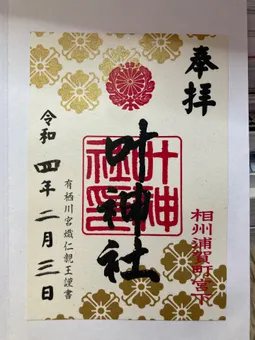 奉拝
相州浦賀町宮下
叶神社
有栖川宮熾仁親王謹書
令和四年二月三日